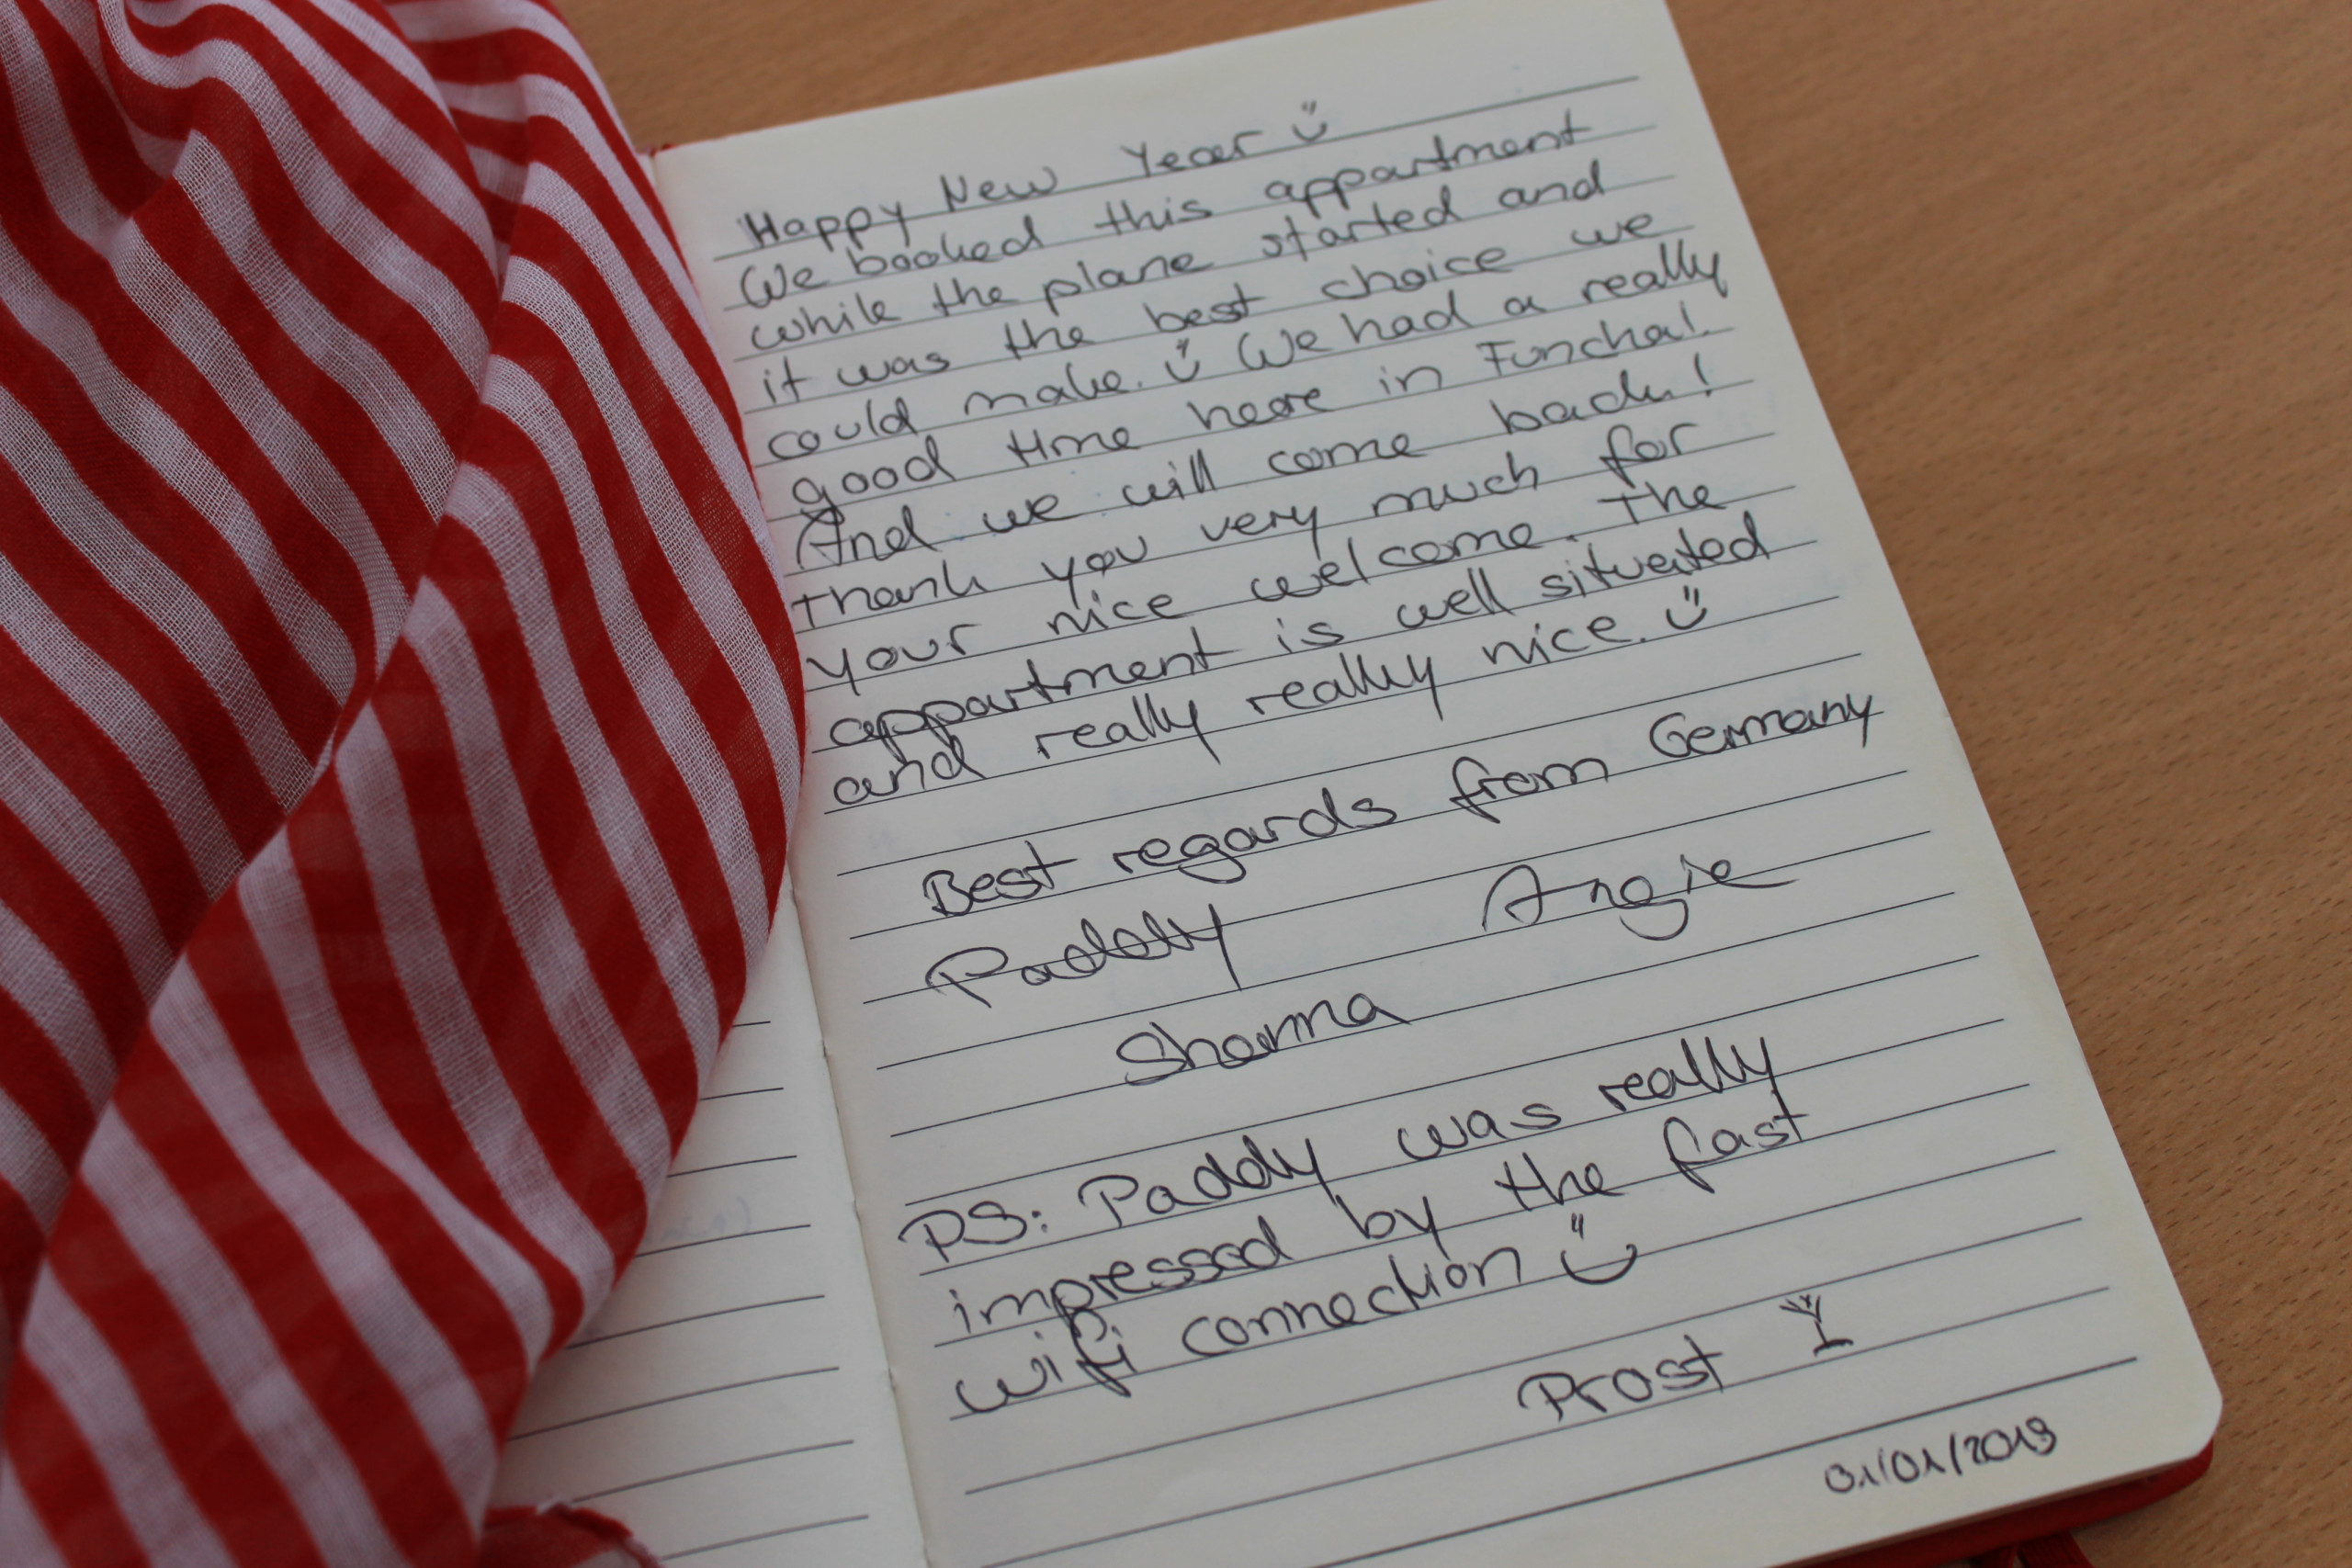 Happy New Year
We booked this appartment
while the plane started and
it was the best choice we
could make. We had a really
good time here in Funchal.
And we will come back!
thank you very much for
your nice welcome. The
appartment is well situated
and really really nice.
Best regards from Germany
Paddy Angie
Shanna
PS: Paddy was really
impressed by the fast
wifi connection
Prost
01/01/2019